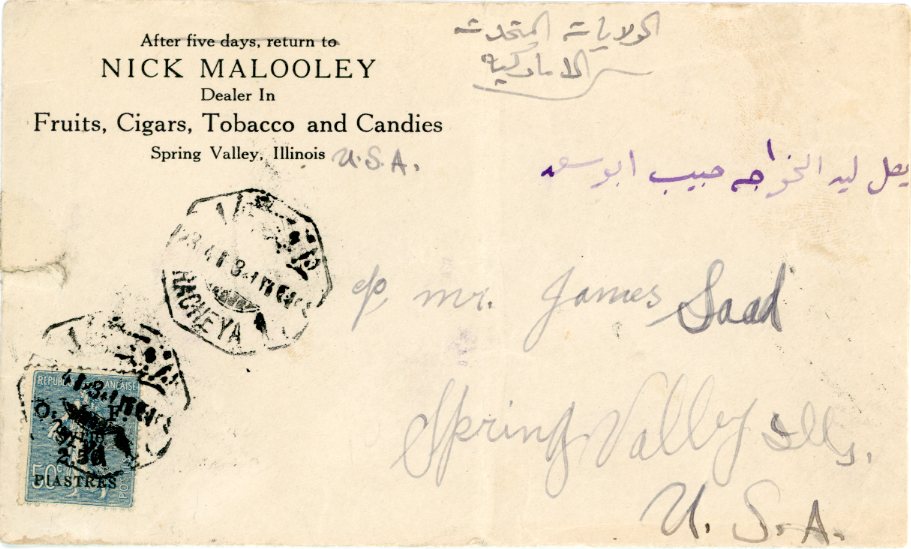 After five days, return to
NICK MALOOLEY
Dealer In
Fruits, Cigars, Tobacco and Candies
Spring Valley, Illinois U.S.A.
الولايات المتحدت
الاماركية
يصل ليد الخواجه حبيب ابو سعد
RACHEYA
c/o mr. James Saad
Spring Valley Ills.
U. S. A.
REPUBLIQUE FRANÇAISE
O. F.
2.50
50c
PIASTRES